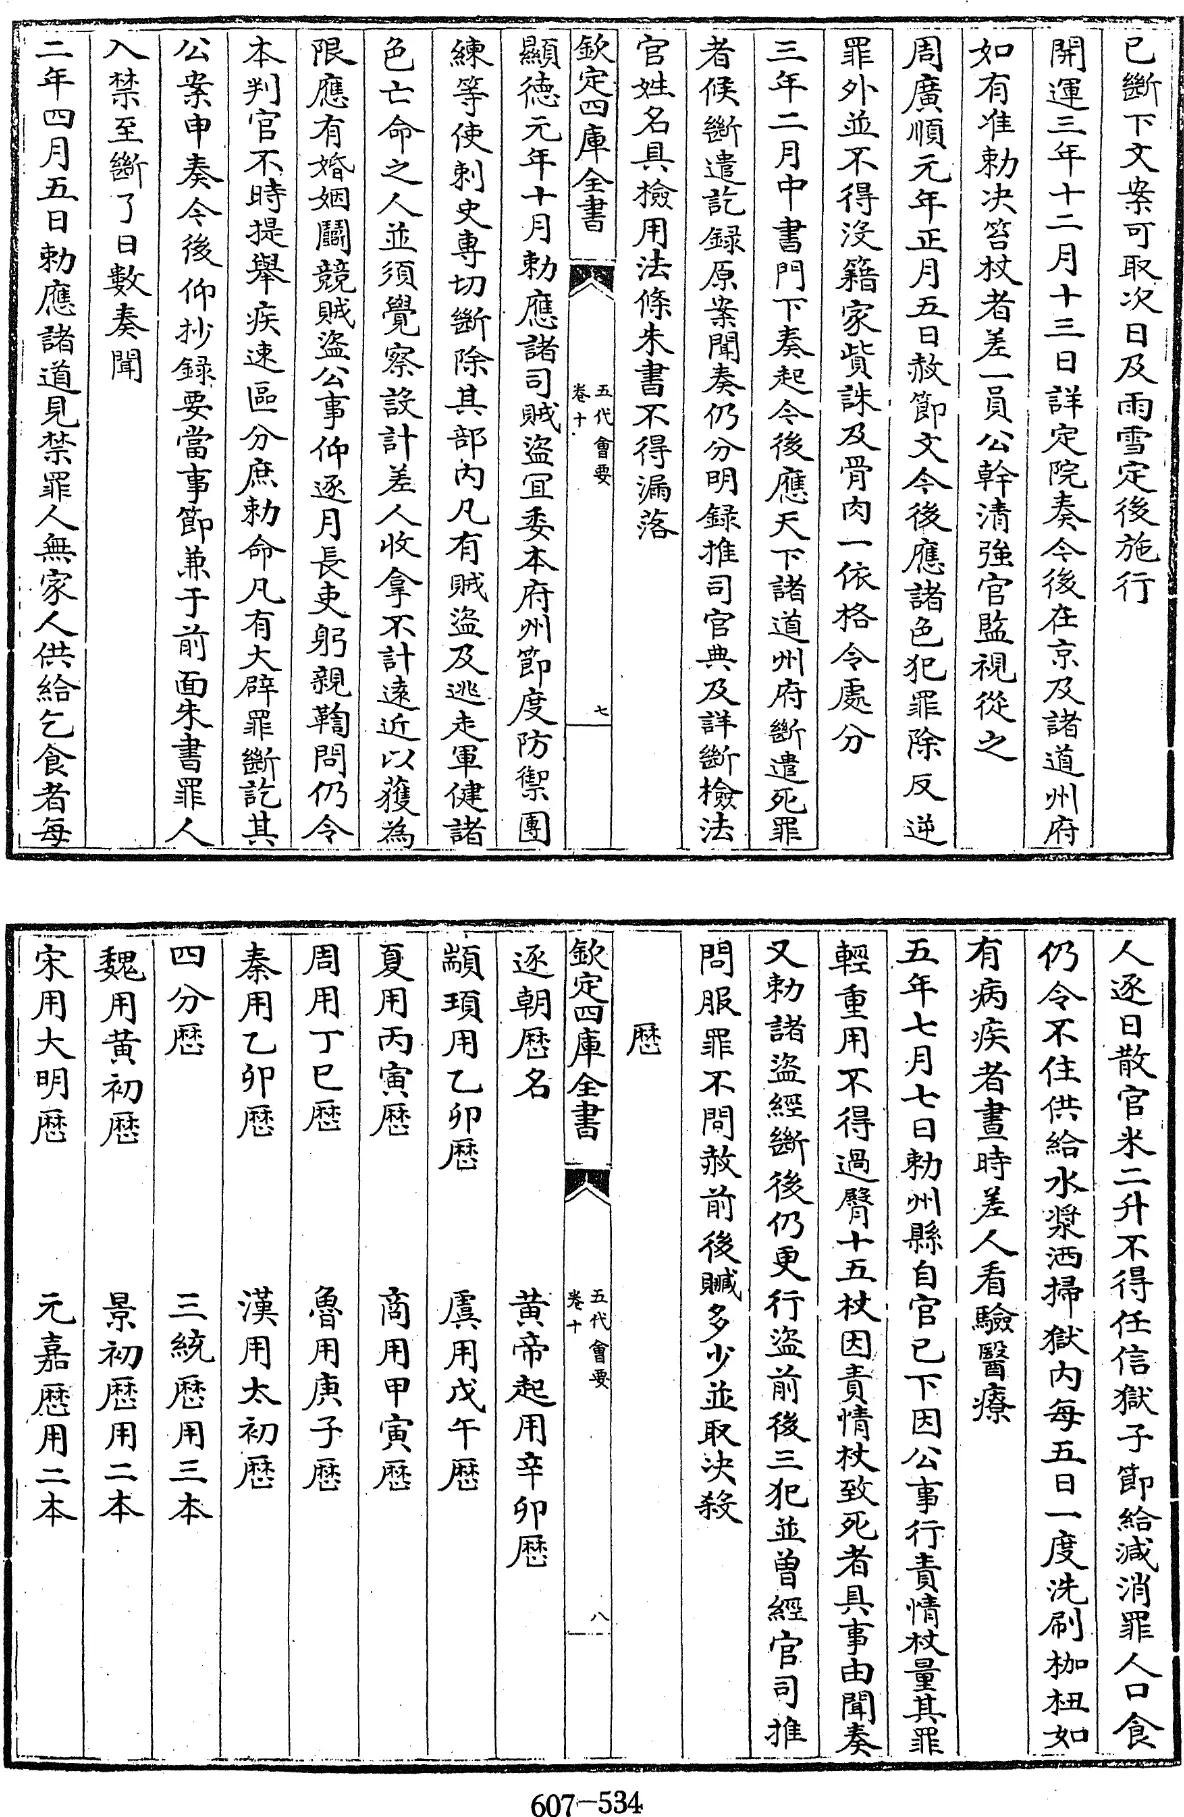 已斷下文案可取次日及雨雪定後施行
開運三年十二月十三日詳定院奏今後在京及諸道州府
如有准勅決笞杖者差一員公幹清強官監視從之
周廣順元年正月五日赦節文今後應諸色犯罪除反逆
罪外並不得沒籍家貲誅及骨肉一依格令處分
三年二月中書門下奏起今後應天下諸道州府斷遣死罪
者候斷遣訖録原案聞奏仍分明録推司官典及詳斷檢法
官姓名具檢用法條朱書不得漏落
欽定四庫全書
五代會要
卷十
七
顯徳元年十月勅應諸司賊盜宜委本府州節度防禦團
練等使刺史專切斷除其部内凡有賊盜及逃走軍健諸
色亡命之人並須覺察設計差人收拿不計遠近以獲為
限應有婚姻鬬競賊盜公事仰逐月長吏躬親鞫問仍令
本判官不時提舉疾速區分庶勅命凡有大辟罪斷訖其
公案申奏今後仰抄録要當事節兼于前面朱書罪人
入禁至斷了日數奏聞
二年四月五日勅應諸道見禁罪人無家人供給乞食者每
人逐日散官米二升不得任信獄子節給減消罪人口食
仍令不住供給水漿洒掃獄内每五日一度洗刷枷杻如
有病疾者晝時差人看驗醫療
五年七月七日勅州縣自官已下因公事行責情杖量其罪
輕重用不得過臀十五杖因責情杖致死者具事由聞奏
又勅諸盜經斷後仍更行盜前後三犯並曾經官司推
問服罪不問赦前後贓多少並取決殺
厯
欽定四庫全書
五代會要
卷十
八
逐朝厯名 黄帝起用辛卯厯
顓頊用乙卯厯 虞用戊午厯
夏用丙寅厯 商用甲寅厯
周用丁巳厯 魯用庚子厯
秦用乙卯厯 漢用太初厯
四分厯 三統厯用三本
魏用黄初厯 景初厯用二本
宋用大明厯 元嘉厯用二本
607-534